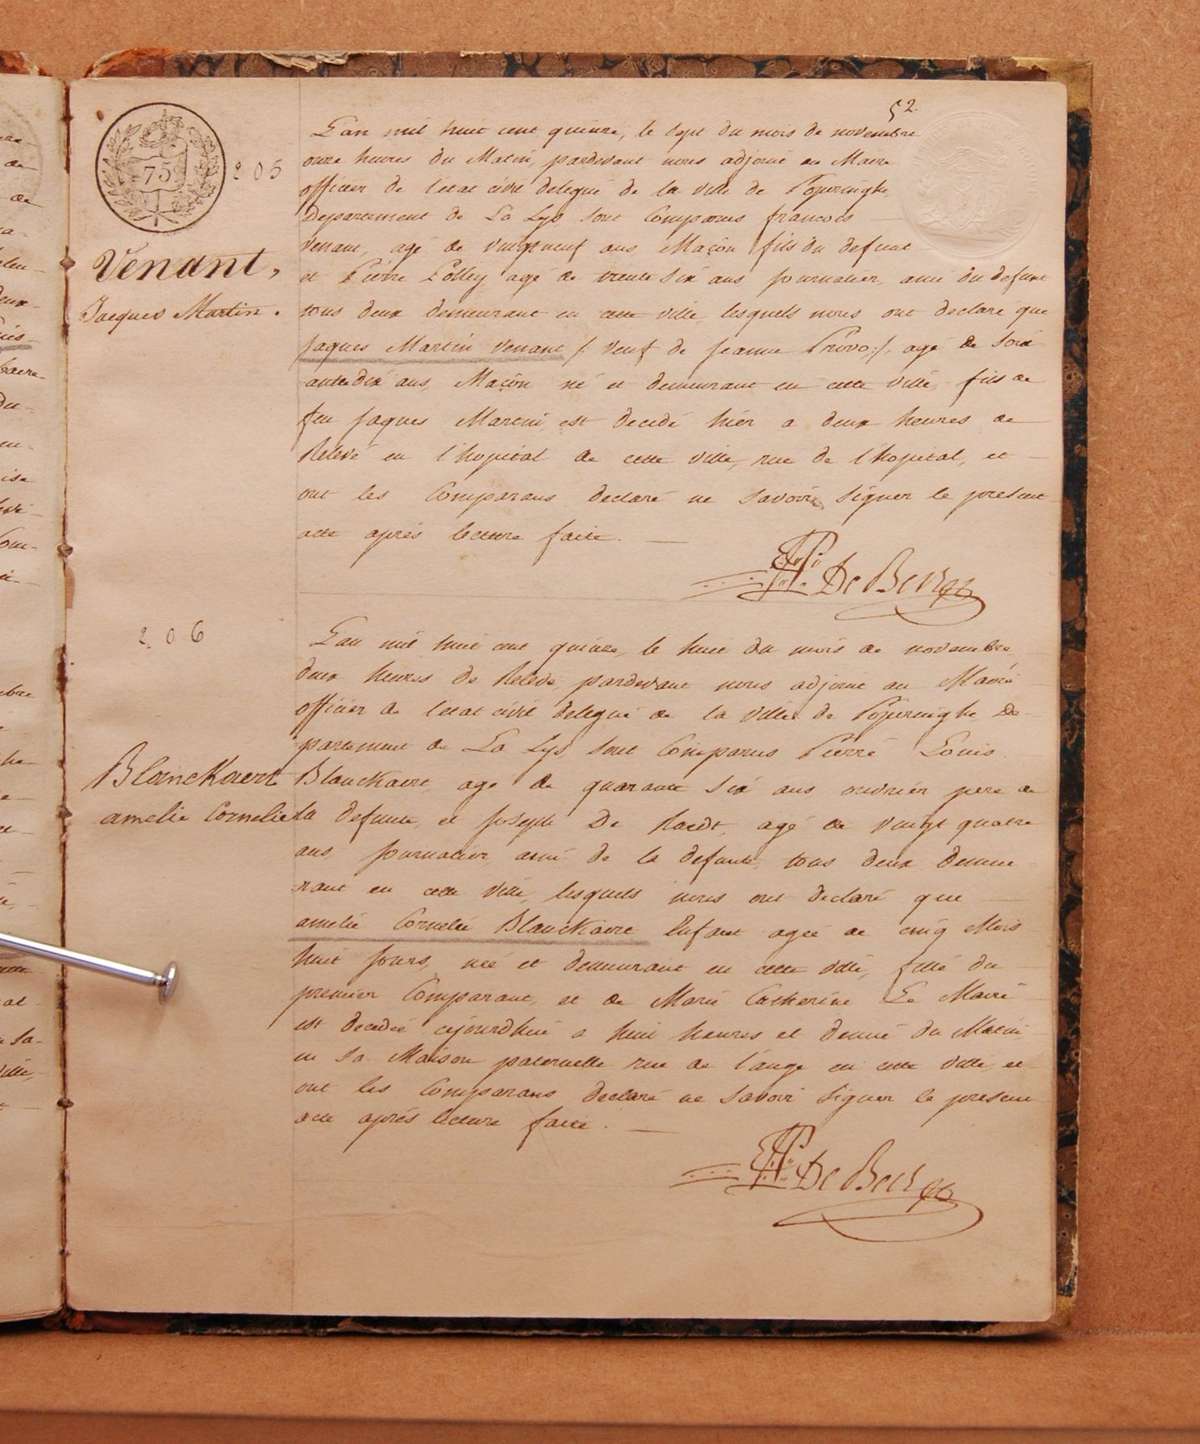 52.
75
205
L'an mil huit cent quinze, le sept du mois de novembre
onze heures du Matin, pardevant nous adjoint au Maire
officier de l'etat civil delegué de la ville de Poperinghe,
Departement de La Lys sont Comparus francois
Venant, agé de vingtneuf ans Maçon fils du defunt
Venant,
et Pierre Polley agé de trente Six ans journalier, ami du defunt
Jacques Martin.
tous deux demeurant en cette ville lesquels nous ont declaré que
jaques Martin Venant /: Veuf de jeanne Provo :/, agé de Soix
antedix ans, Maçon né et demeurant en cette ville, fils de
feu jaques Martin est decedé hier a deux heures de
Relevé en l'hopital de cette ville, rue de l'hopital, et
ont les Comparans declaré ne Savoir Signer le present
acte aprés lecture faite.
De Berg
206
L'an mil huit cent quinze, le huit du mois de novembre
deux heures de Relevé pardevant nous adjoint au Maire
officier de l'etat civil delegué de la ville de Poperinghe De
partement de La Lys sont Comparus Pierre Louis
Blanckaert
Blanckaire, agé de quarante Six ans ouvrier pere de
amelie Cornelie
la defunte, et joseph De Raedt, agé de vingt quatre
ans, journalier ami de la defunte, tous deux demeu
rant en cette ville, lesquels nous ont declaré que
amelie Cornelie Blanckaire Enfant agée de cinq Mois
huit jours, née et demeurant en cette ville, fille du
premier Comparant, et de Marie Catherine Le Maire
est decedée cejourdhui a huit heures et demie du Matin
en Sa Maison paternelle rue de l'ange en cette ville, et
ont les Comparans declaré ne Savoir Signer le present
acte aprés lecture faite.
De Berg